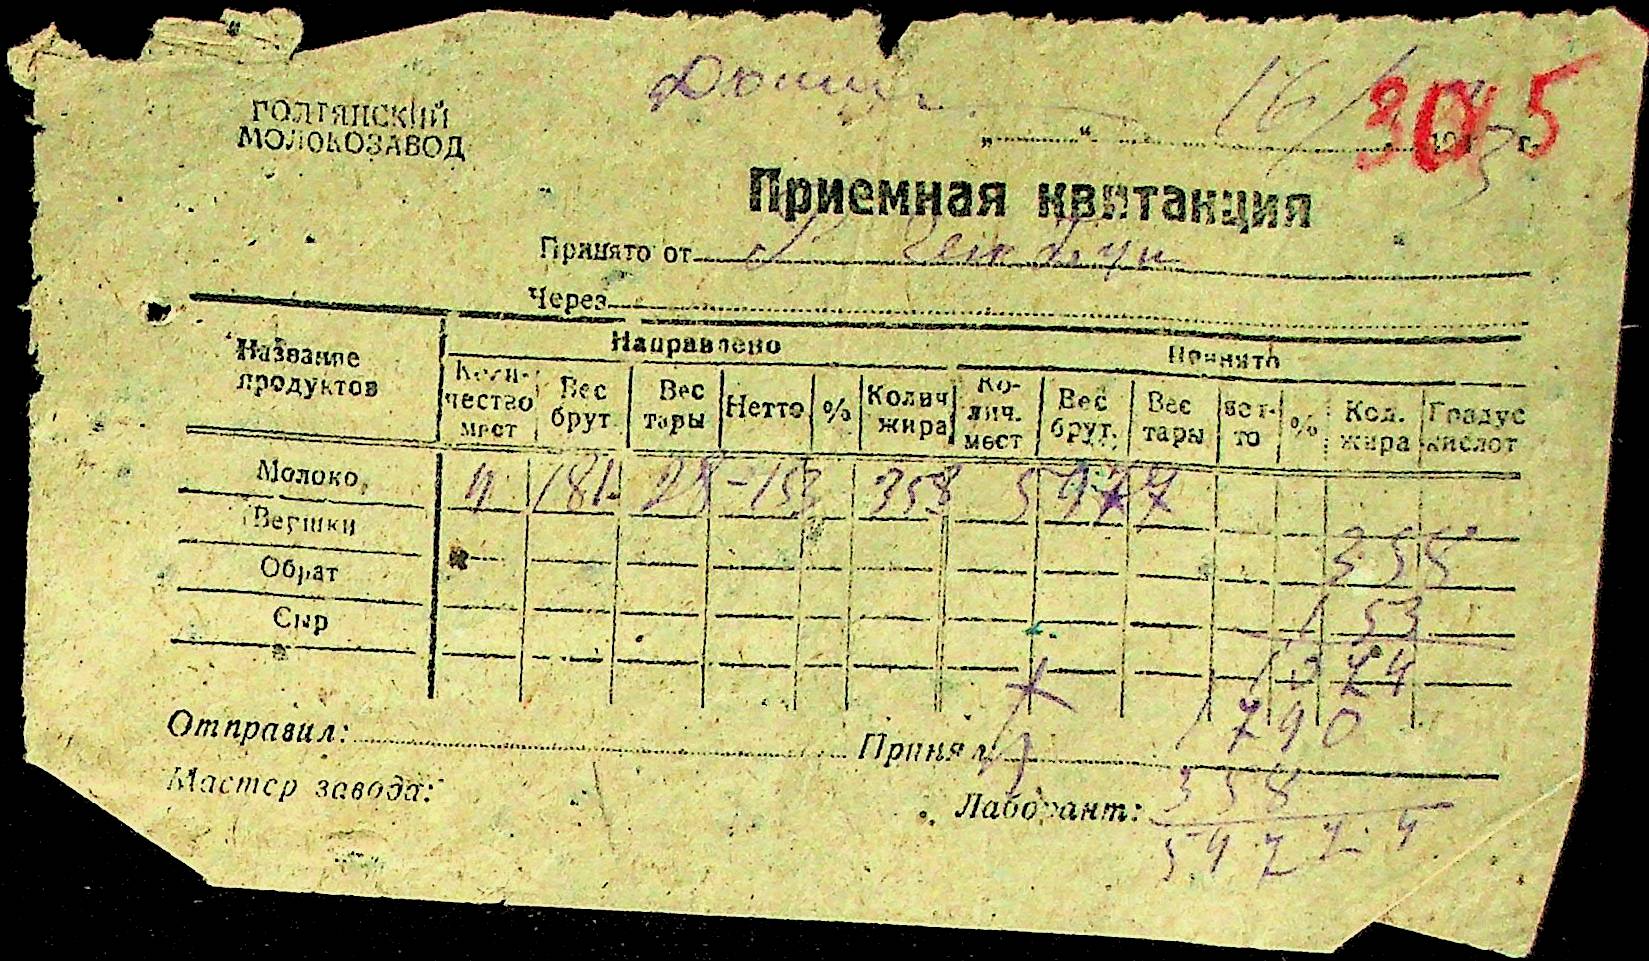 ГОЛТЯНСКИЙ
МОЛОКОЗАВОД
16/
3045
„ “ 194 г.
Приемная квитанция
Принято от
Через
Название продуктов Направлено Принято
Количество мест Вес брут. Вес тары Нетто % Колич. жира Колич. мест Вес брут. Вес тары Нетто % Кол. жира Градус кислот
Молоко 4 181- 28 -153 358 5477
Вершки
358
Обрат
153
Сыр
1074
1790
Отправил: Принял
358
Мастер завода: Лаборант:
5477.4